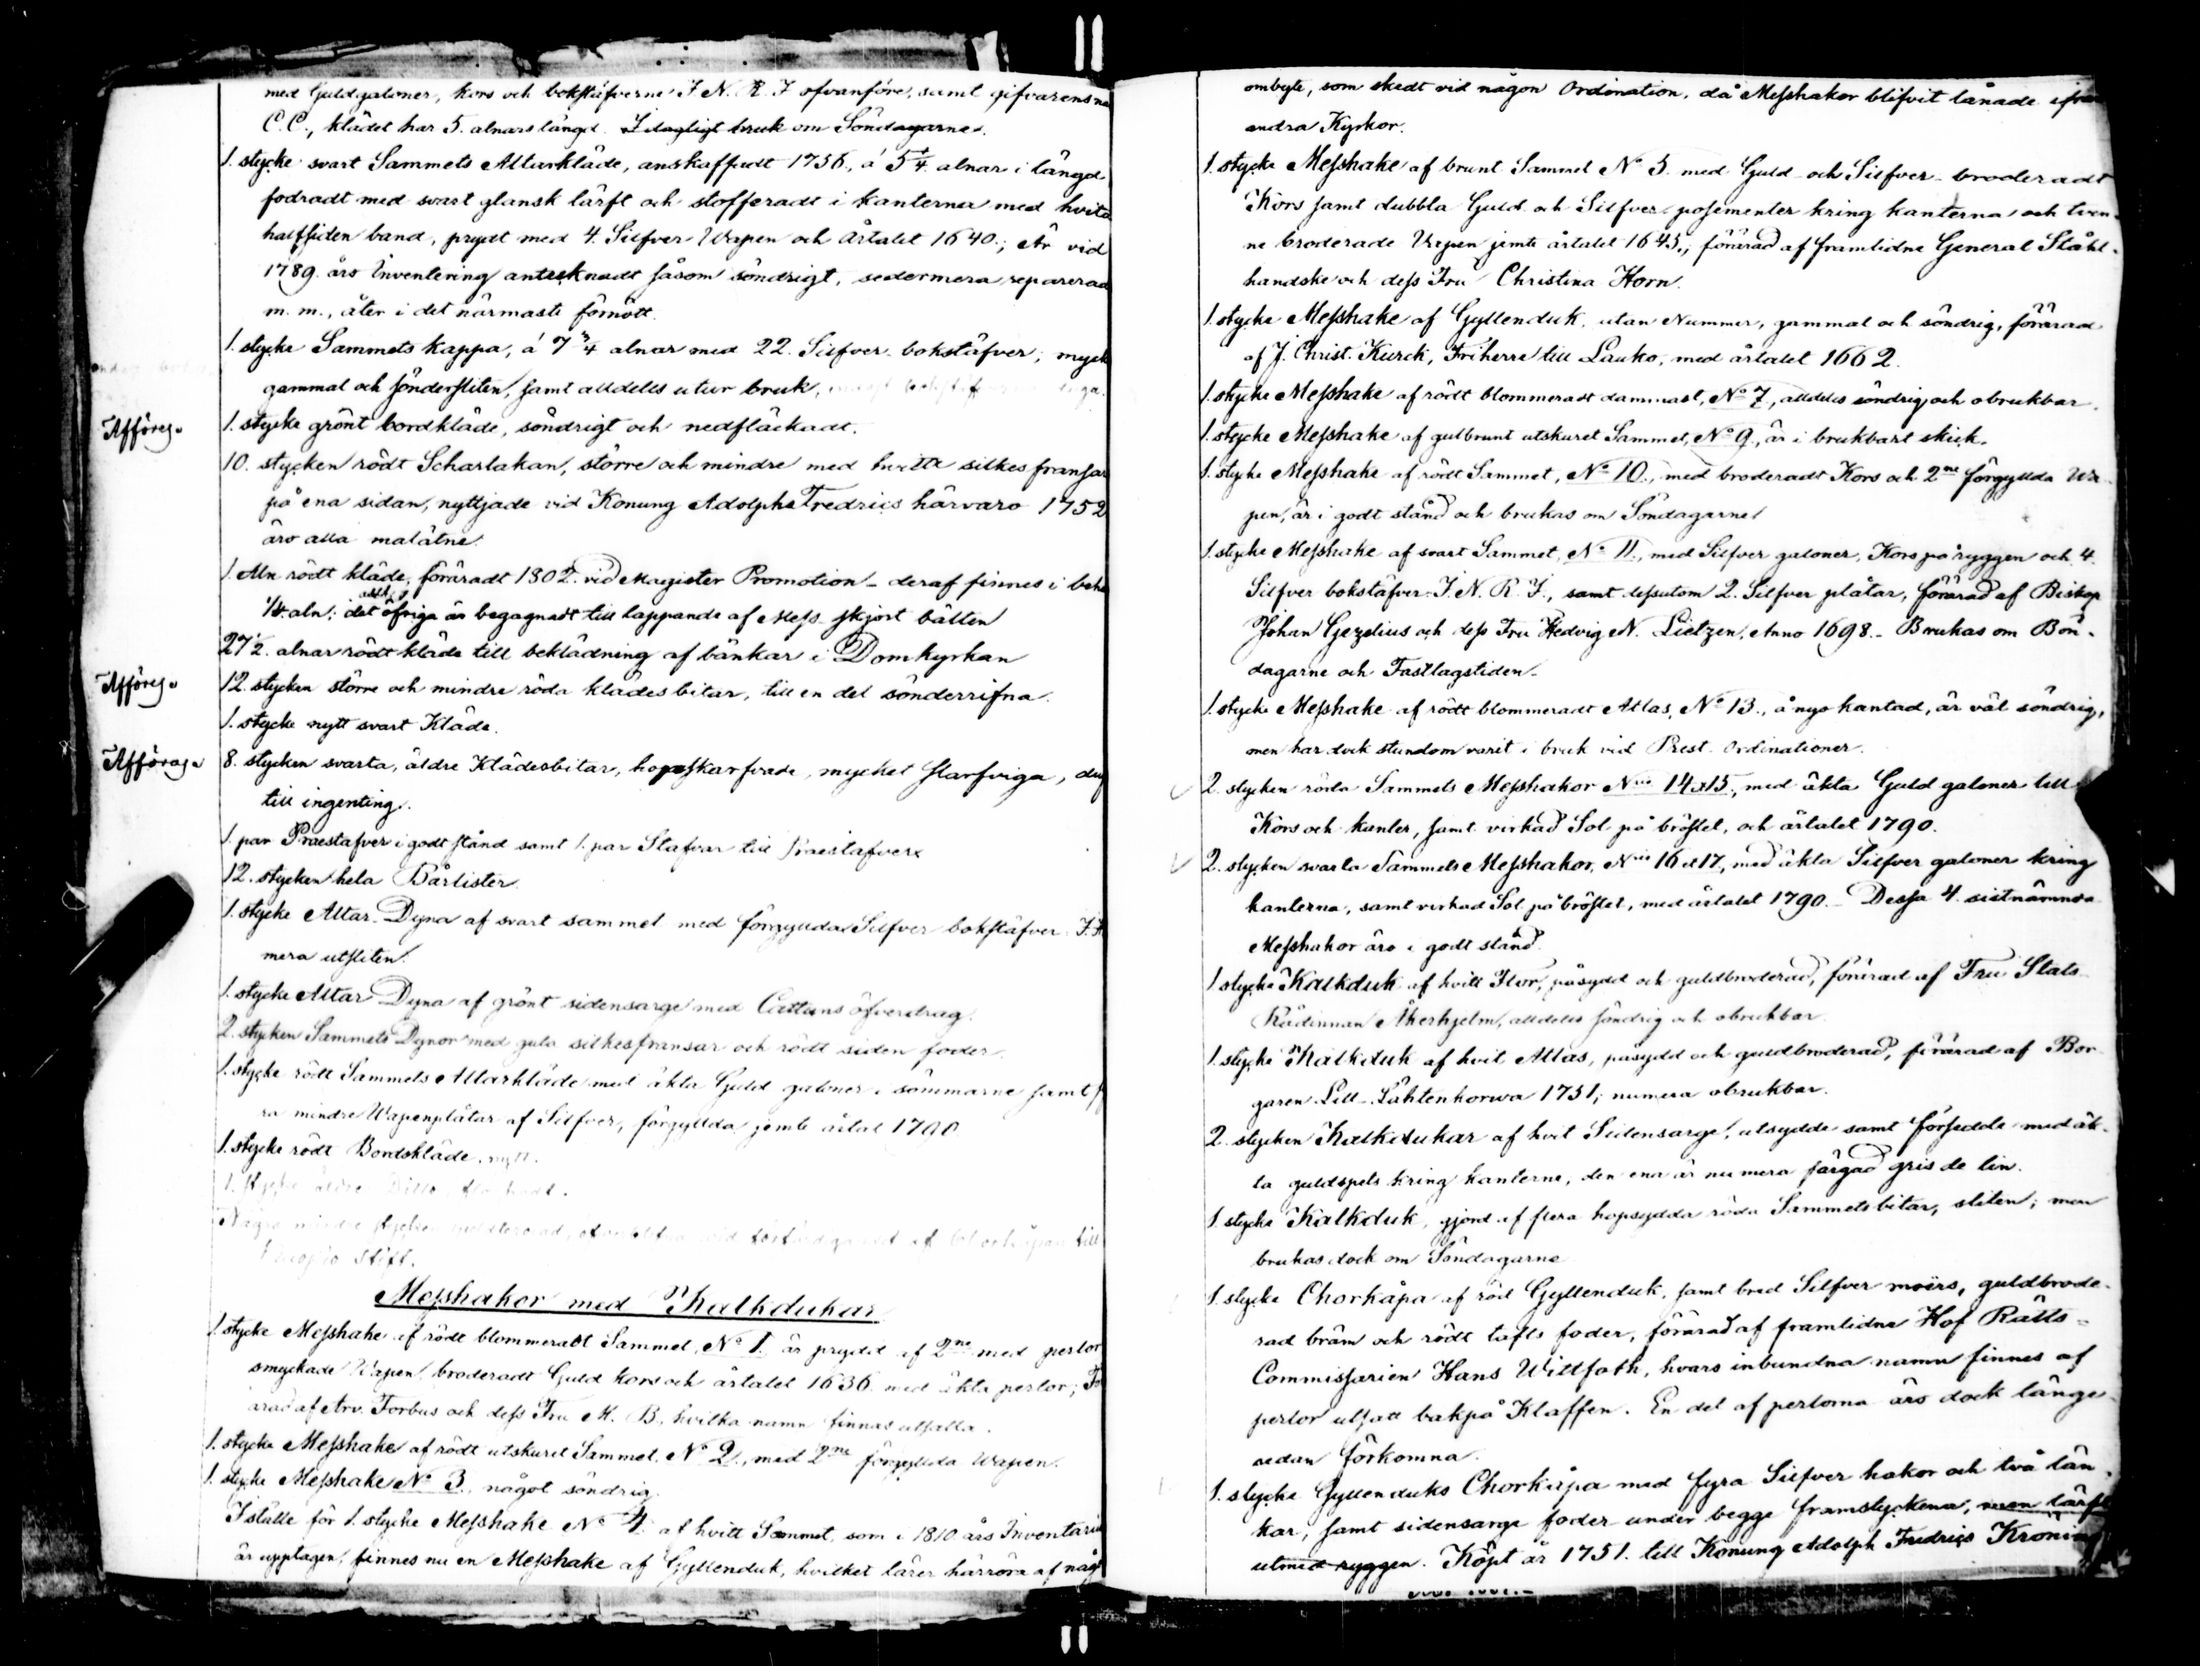 med Guldgaloner, kors och bokstäfverne I. N. R. I ofvanföre, samt gifvarens
C. C., klädet har 5. alnars längd. I dagligt bruk om Söndagarne.
1. stycke svart Sammets Altarkläde, anskaffadt 1756, á 5 1/4 alnar i längd
fodradt med svart glansk lärft och stofferadt i kanterna med hvita
halfsiden band, prydt med 4. Silfver Wapen och årtalet 1640.; Är vid
1789. års Inventering antecknadt såsom söndrigt, sedermera reparerad
m. m., åter i det närmaste förnött.
1. stycke Sammets kappa, á 7 3/4 alnar med 22. Silfver bokstäfver;
gammal och sönderssliten, samt alldeles utur bruk,
Afföres
1. stycke grönt bordkläde, söndrigt och nedfläckadt.
10. stycken rödt Scharlakan, större och mindre med hvitte silkes fransar
på ena sidan, nyttjade vid Konung Adolph Fredrics härvaro 1752
äro alla malätne.
1 Aln rödt kläde, föräradt 1802. vid Magister Promotion - deraf finnes i
1/4. aln; det öfriga är begagnadt till lappande af Mess skjort bälten
27 1/2. alnar rödt kläde till beklädning af bänkar i Domkyrkan
Afföres
12. stycken större och mindre röda klädesbitar, till en del sönderrifna.
1. stycke nytt svart Kläde.
Afföras
8. stycken svarta, äldre Klädesbitar, hopskarfvade, mycket slarfviga,
till ingenting.
1. par Praestafver i godt stånd samt 1. par Stafvar till Praestafver
12. stycken hela Bårlister
1. stycke Altar Dyna af svart sammet med förgyllda Silfver bokstäfver
mera utsliten.
1. stycke Altar Dyna af grönt sidensarge med Cattuns öfverdrag.
2. stycken Sammets Dynor med gula silkesfransar och rödt siden foder.
1. stycke rödt Sammets Altarkläde med äkta Guld galoner i sömmarne samt
ra mindre Wapenplåtar af Silfver, förgyllda jemte årtal 1790
1. stycke rödt Bordskläde, nytt.
1. stycke äldre Ditto,
Några mindre stycken
Stift.
Messhakor med Kalkdukar
1 stycke Messhake af rödt blommeradt Sammet, No 1. är prydd af 2ne med perlor
smyckade Wapen, broderadt Guld kors och årtalet 1636. med äkta perlor;
ärad af Arv. Forbus och dess Fru M. B. hvilka namn finnas utsatta.
1. stycke Messhake af rödt utskuret Sammet, No 2, med 2ne förgyllda Wapen.
1. stycke Messhake No 3. något söndrig.
I stället för 1. stycke Messhake No 4. af hvitt Sammet, som i 1810. års Inventarie
är upptagen, finnes nu en Messhake af Gyllenduk, hvilket lärer härröra af någ
ombyte, som skedt vid någon Ordination, då Messhakor blifvit lånade ifrån
andra Kyrkor.
1. stycke Messhake af brunt Sammet No 5. med Guld och Silfver broderadt
Kors samt dubbla Guld och Silfver posementer kring kanterna och tven-
ne broderade Wapen jemte årtalet 1645., förärad af framlidne General Stål-
handske och dess Fru Christina Horn.
1. stycke Messhake af Gyllenduk, utan Nummer, gammal och söndrig, förärad
af J. Christ. Kurck, Friherre till Lauko, med årtalet 1662.
1. stycke Messhake af rödt blommeradt dammast, No 7, alldeles söndrig och obrukbar.
1. stycke Messhake af gulbrunt utskuret Sammet, No 9, är i brukbart skick.
1. stycke Messhake af rödt Sammet, No 10., med broderadt Kors och 2ne förgyllda Wa-
pen, är i godt stånd och brukas om Söndagarne
1. stycke Messhake af svart Sammet, No 11., med Silfver galoner, Kors på ryggen och 4.
Silfver bokstäfver I. N. R. I., samt dessutom 2. Silfver plåtar, förärad af Biskop
Johan Gezelius och dess Fru Hedvig N. Lietzen, Anno 1698. - Brukas om Bön-
dagarne och Fastlagstiden.
1. stycke Messhake af rödt blommeradt Atlas, No 13., å nyo kantad, är väl söndrig,
men har dock stundom varit i bruk vid Prest Ordinationer.
2. stycken röda Sammets Messhakor Nris 14 & 15., med äkta Guld galoner till
Kors och kanter, samt virkad Sol på bröstet, och årtalet 1790.
2. stycken svarta Sammets Messhakor, Nris 16 & 17, med äkta Silfver galoner kring
kanterna, samt virkad Sol på bröstet, med årtalet 1790. - Dessa 4. sistnämnda
Messhakor äro i godt stånd.
1 stycke Kalkduk af hvitt Flor, påsydd och guldbroderad, förärad af Fru Stats
Rådinnan Åkerhjelm, alldeles söndrig och obrukbar.
1. stycke Kalkduk af hvit Atlas, påsydd och guldbroderad, förärad af Bor-
garen Lill-Lähtenkorwa 1751; numera obrukbar.
2. stycken Kalkdukar af hvit Sidensarge, utsydde samt försedde med äk-
ta guldspets kring kanterne, den ena är nu mera färgad gris de lin.
1. stycke Kalkduk, gjord af flera hopsydda röda Sammetsbitar, sliten; men
brukas dock om Söndagarne
1. stycke Chorkåpa af röd Gyllenduk, samt bred Silfver moërs, guldbrode-
rad bräm och rödt tafts foder, förärad af framlidne Hof Rätts-
Commissarien Hans Wittfoth, hvars inbundna namn finnes af
perlor utsatt bakpå Klaffen. En del af perlorna äro dock länge
sedan förkomna.
1. stycke Gyllenduks Chorkåpa med fyra Silfver hakor och två län-
kar, samt sidensarge foder under begge framstyckena, men lärft
utmed ryggen. Köpt år 1751. till Konung Adolph Fredrics Kröning